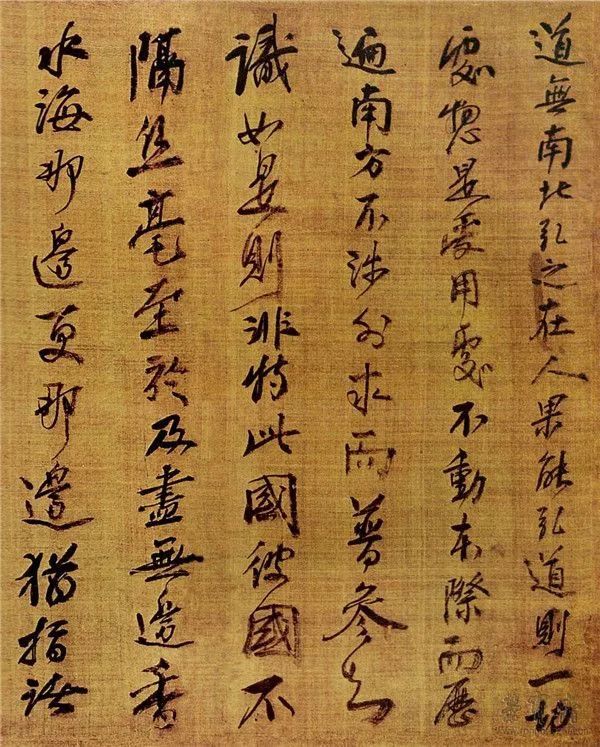 道無南北弘之在人果能弘道則一切
處惣是受用處不動本際而歷
遍南方不涉外求而普參知
識如是則非特此國彼國不
隔絲毫至於及盡無邊香
水海那邊更那邊猶指諸